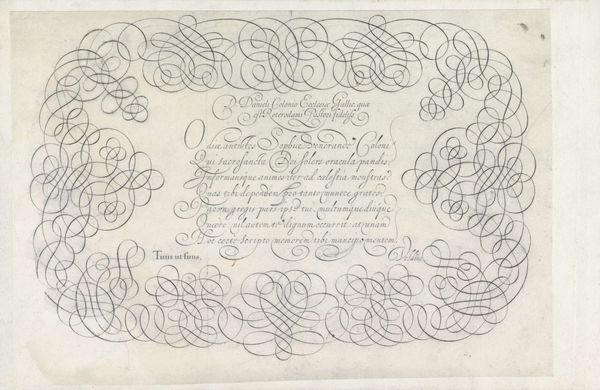 D. Danieli Colonio Ecclesiæ Gallicæ quæ
est Roterodami Pastori fideliss.
O diæ antistes Sophiæ Venerande Coloni
Qui sacrosancta Dei solers oracula pandis,
Informansque animos iter ad cœlestia monstras:
Quas tibi dependem pro tanto munere grates,
Pacem gregis pars ipse tui, multumque diuque
Quæro, nil autem te dignum occurrit, at unam
Hoc cocto scripto memorem tibi mancipo mentem.
Tuus ut suus,
Velde.